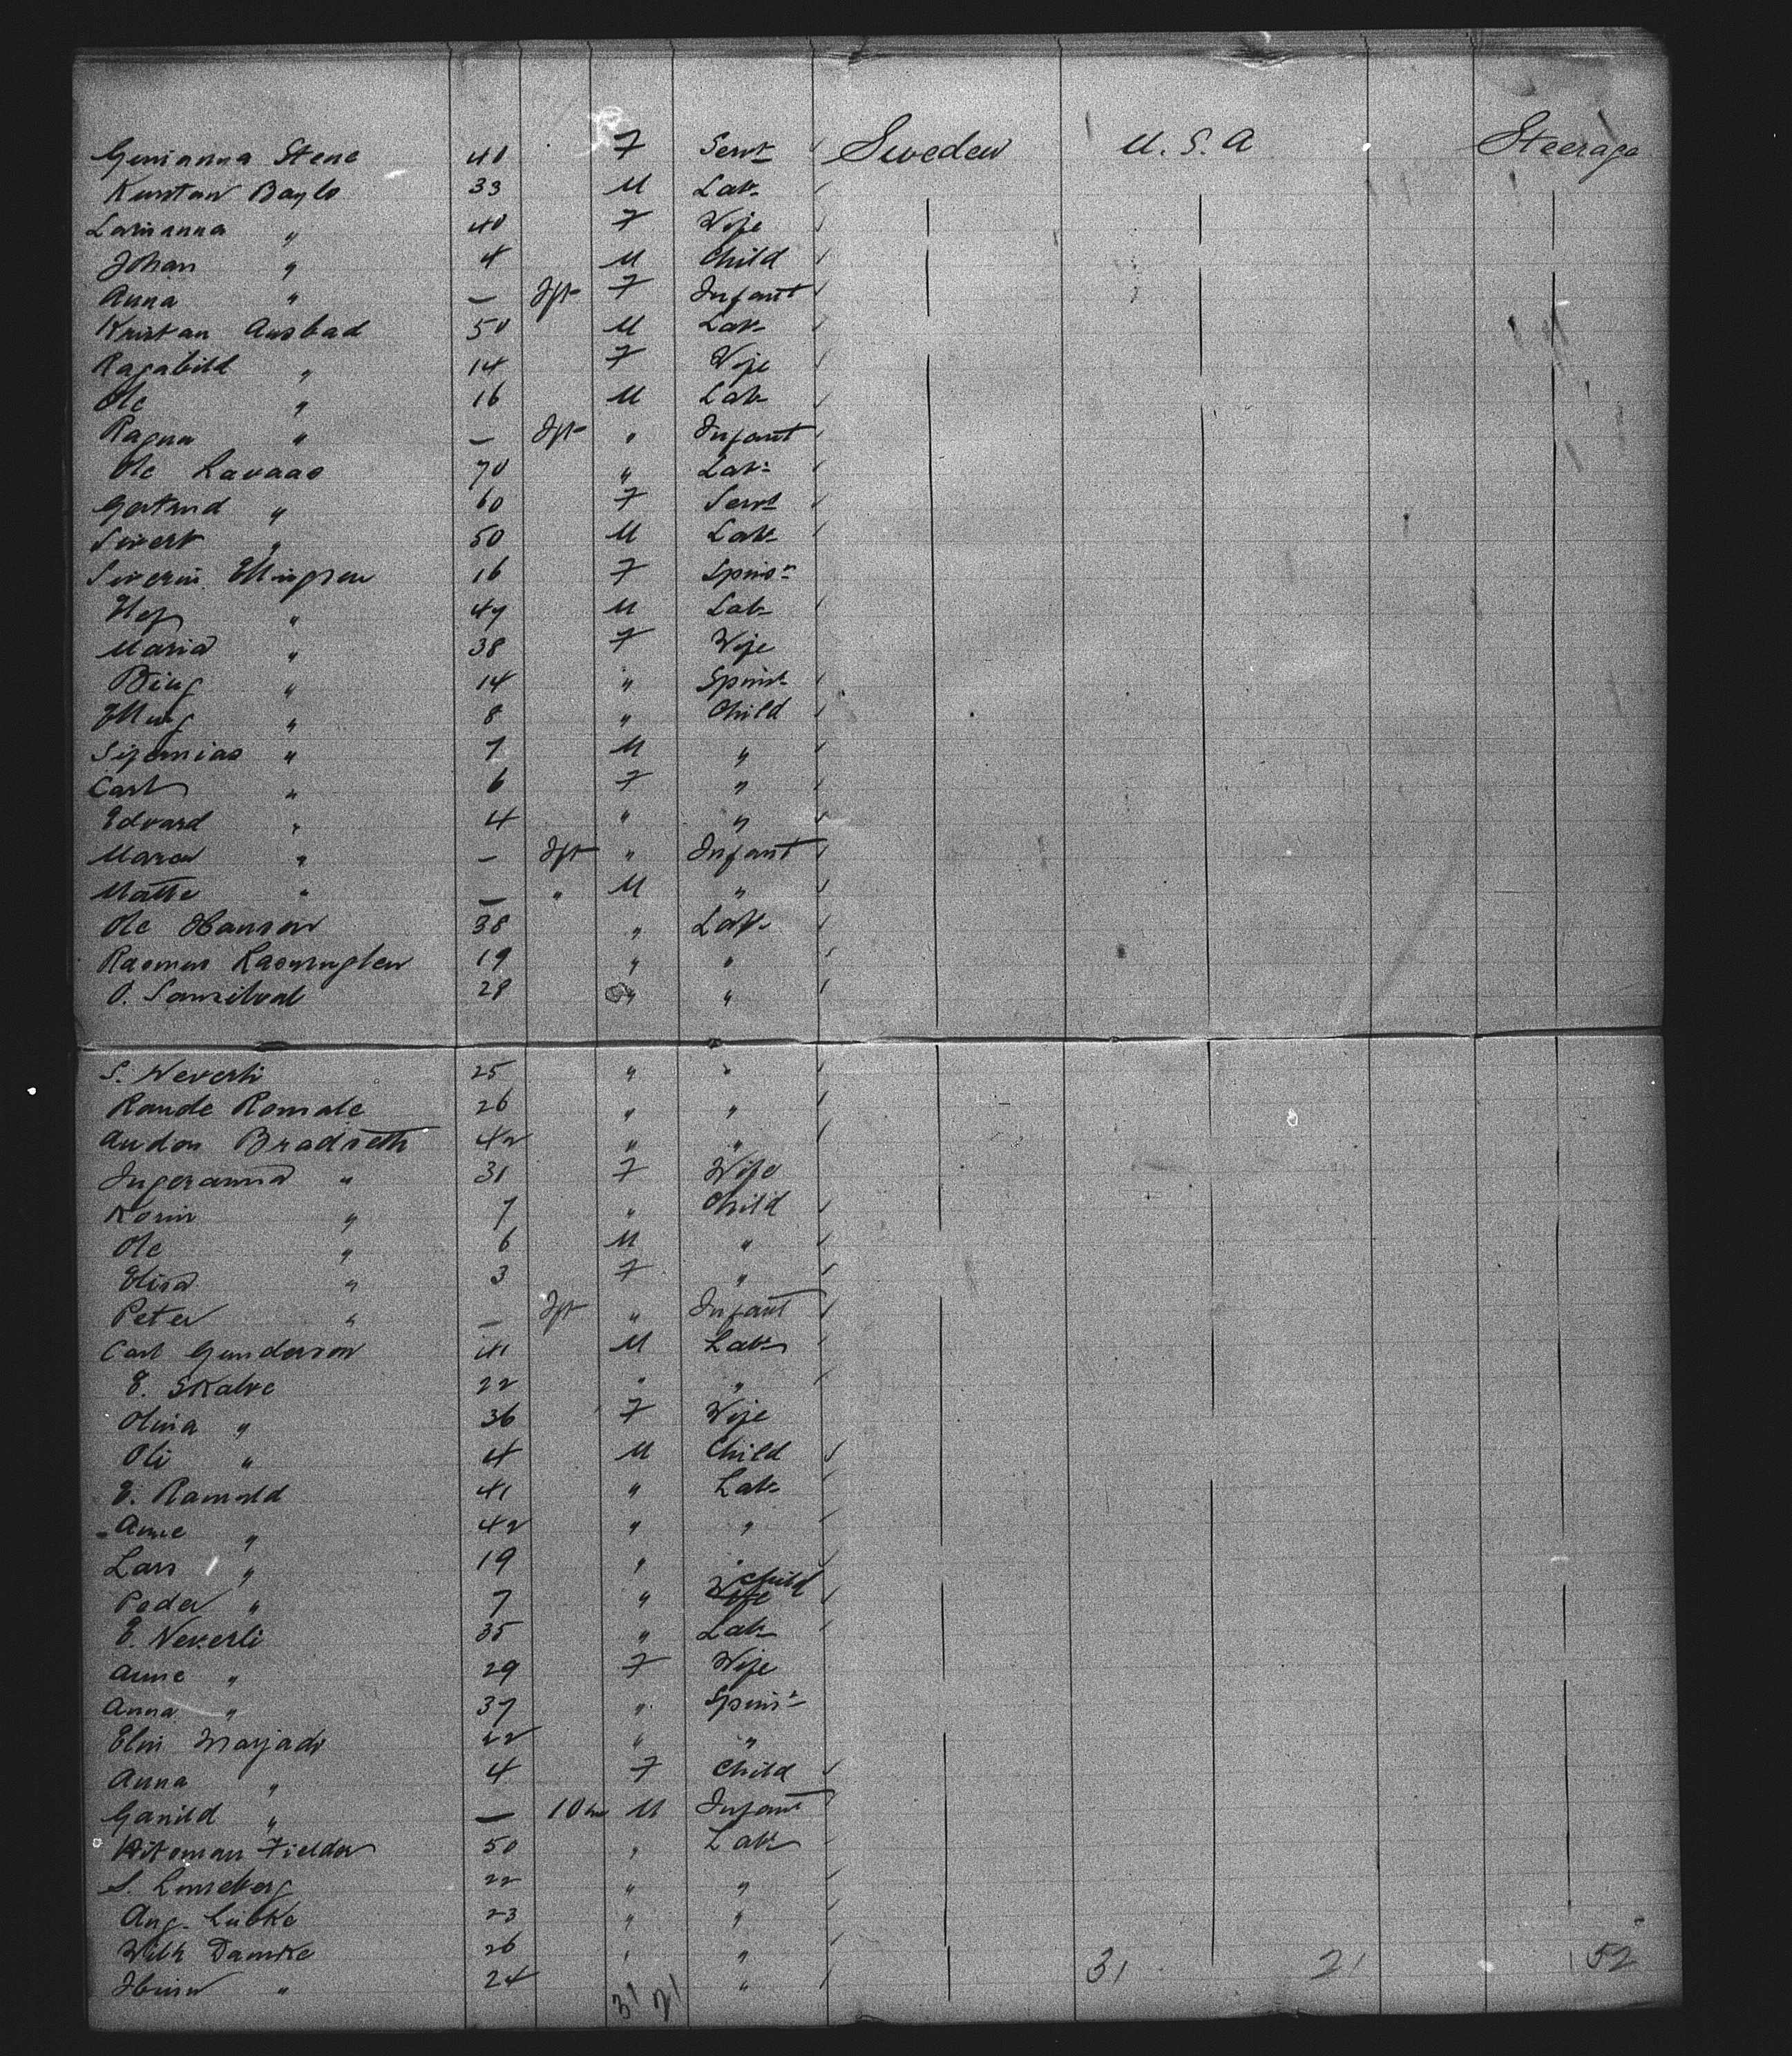 Gunianna Stene 40 F Servt Sweden U.S.A Steerage
Kurstan Baylo 33 M Lab
Larinanna " 40 F Wife
Johan " 4 M Child
Anna " — Inft F Infant
Kristan Ausbad 50 M Lab
Ragabild " 14 F Wife
Ole " 16 M Lab
Ragna " — Inft " Infant
Ole Lavaas 70 " Lab
Gertrud " 60 F Servt
Sivert " 50 M Lab
Siverin Ellingsen 16 F Spinst
" 47 M Lab
Maria " 38 F Wife
" 14 " Spinst
Elling " 8 " Child
" 7 M "
Carl " 6 F "
Edvard " 4 " "
" — Inft " Infant
Mathe " — " M "
Ole Hanson 38 " Lab
Rasmus 19 " "
O. 28 " "
S. Neverli 25 " "
Rande Romale 26 " "
Audon Bradseth 42 " "
Ingeranna " 31 F Wife
Korin " 7 " Child
Ole " 6 M "
Elisa " 3 F "
Peter " — Inft " Infant
Carl Gunderson 41 M Lab
E. Skalve 22 " "
Olina " 36 F Wife
Oli " 4 M Child
E. Ramold 41 " Lab
Anne " 42 " "
Lars " 19 " "
Peder " 7 " Wife Child
E. Neverli 35 " Lab
Anne " 29 F Wife
Anna " 37 " Spinst
Elin 22 " "
Anna " 4 F Child
Ganild " — 10m M Infant
Fielder 50 " Lab
S. Lonseberg 22 " "
Aug. Lübke 23 " "
Wilh Damske 26 " "
" 24 "
31 21 31 21 52